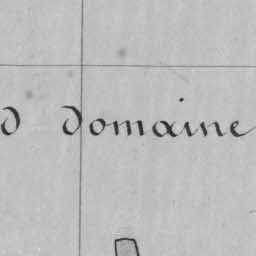 d domaine